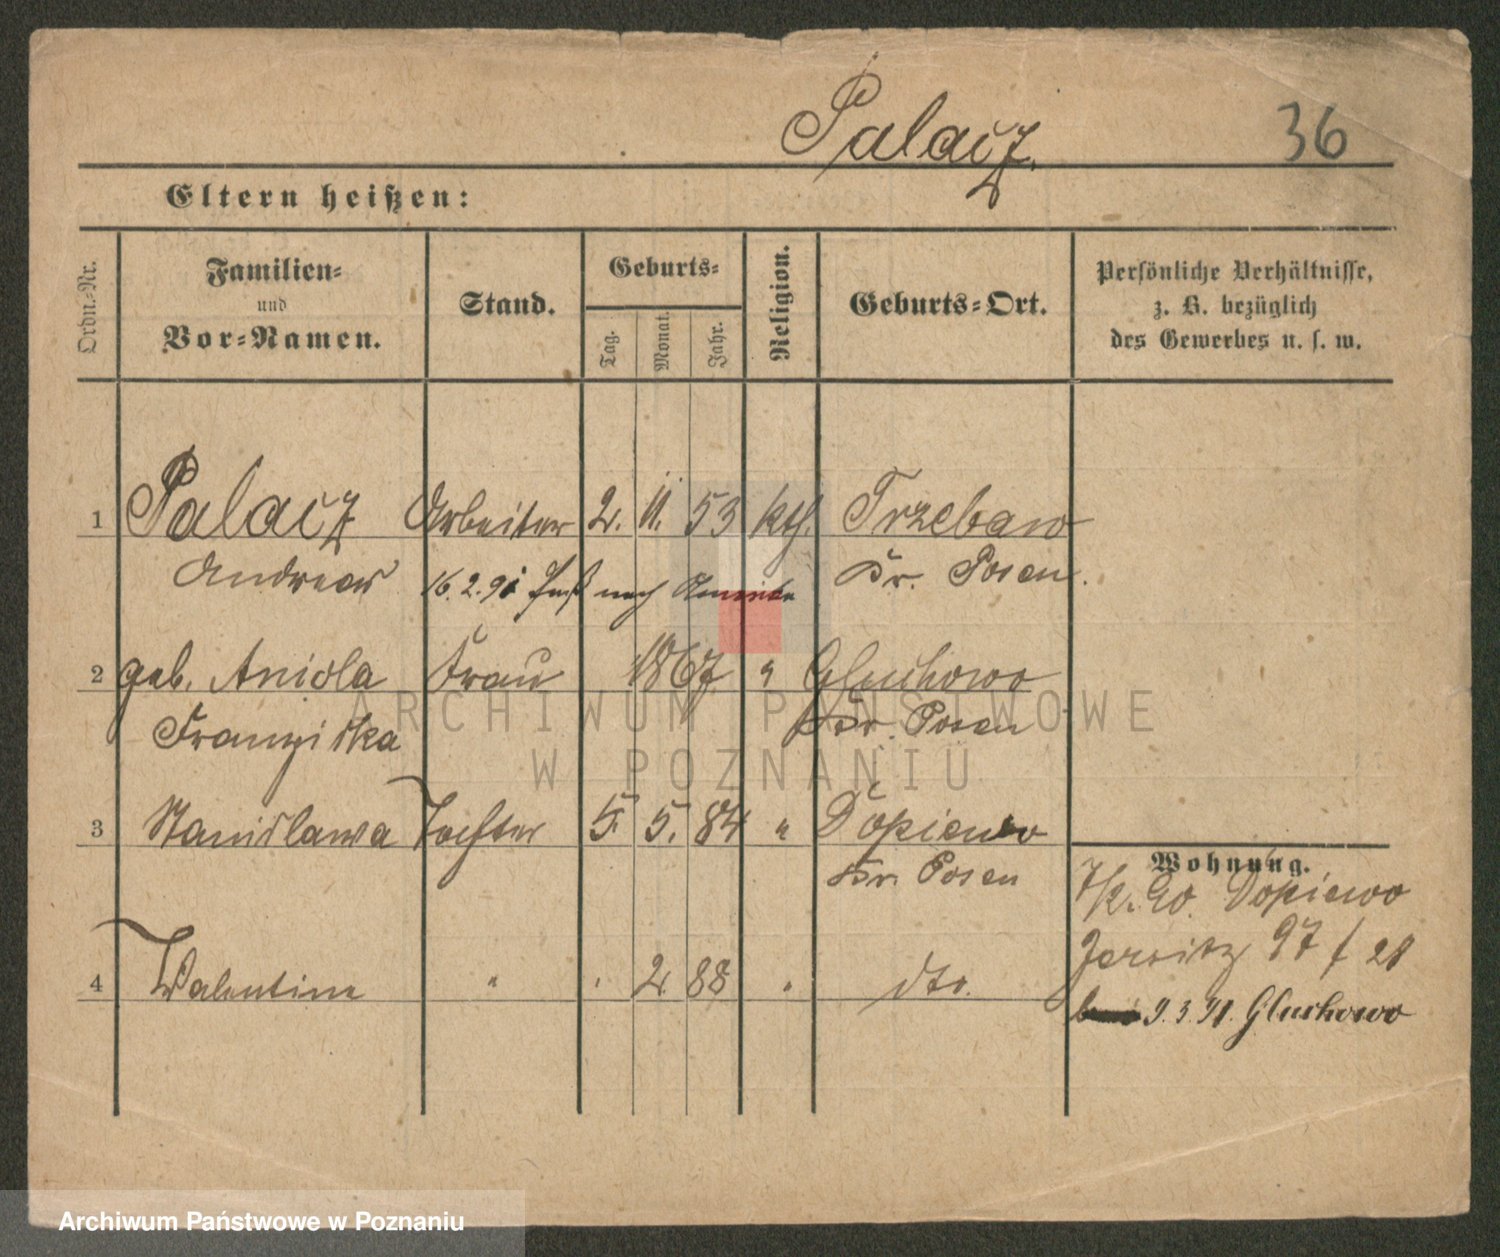 Palacz.
36
Eltern heißen:
Ordn.-Nr.
Familien-
und
Vor-Namen.
Stand.
Geburts-
Tag.
Monat.
Jahr.
Religion.
Geburts-Ort.
Persönliche Verhältnisse,
z. B. bezüglich
des Gewerbes u. s. w.
1 Palacz Arbeiter 2. 11. 53 kth. Trzebaw
Andreas 16.2.91 Paß nach Amerika Kr. Posen.
2 geb. Aniola Frau 1867 " Gluchowo
Franziska Kr. Posen
3 Stanislawa Tochter 5. 5. 84 " Dopiewo
Kr. Posen
Wohnung.
Dopiewo
Jersitz 97 f 21
4 Valentine " " 2. 88 " dto.
9.3.91. Gluchowo
ARCHIWUM PAŃSTWOWE
W POZNANIU
Archiwum Państwowe w Poznaniu